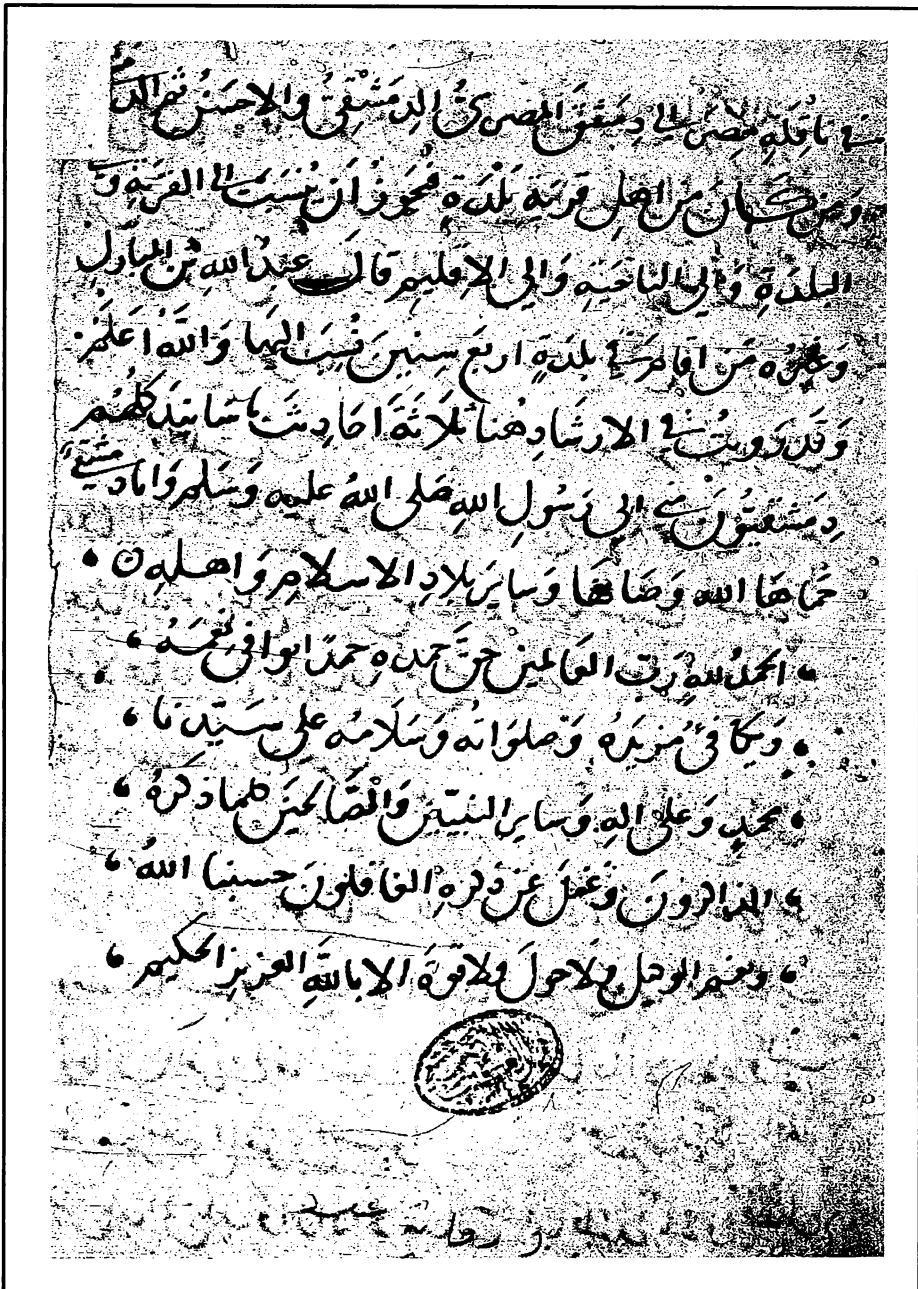 في ناقلة مصر الي دِمَشقَ المصريُّ الدِمَشْقِيُّ والاحسَنُ ثم الدمـ
وَمَن كَانَ مِن اهلِ قريَةِ بَلْدَةٍ فيجَوزُ اَن يُنسَبَ الي القريَةِ وَالي
البلدَةِ وَالي الناحيَةِ وَالي الاقليم قالَ عبدُ اللهِ بْن المبَارَكِ
وَغيرُه مَن اقامَ في بلدَةٍ اربَع سِنينَ نُسِبَ اليهَا وَاللهُ اَعلَمُ
وَقَد رَوَيتُ في الارشَادِ هُنا ثلَاثَةَ اَحَاديثَ باسَانيدَ كلهُم
دِمَشقيُّونَ مني الي رَسُولِ اللهِ صَلى اللهُ عليه وَسَلم وَانا دِمَشقيٌّ
حَمَاهَا الله وَصَانَهَا وَسايرَ بلادِ الاسلامِ وَاهلهِ ن
الحمدُ للهِ رَبّ العَالمين حَقَّ حَمدهِ حمدًا يوافي نِعَمهُ
وَيكَافئُ مَزيدَهُ وَصلوَاتهُ وَسَلَامُه علي سَيّدِنا
محمدٍ وَعلي الهِ وَسايرِ النبيّين وَالصَّالحينَ كلما ذكرَهُ
الذاكرونَ وَغفلَ عَن ذكرهِ الغافلونَ حسبنا اللهُ
وَنعم الوكيل وَلَا حولَ وَلا قوةَ الا باللهِ العزيزِ الحكيم